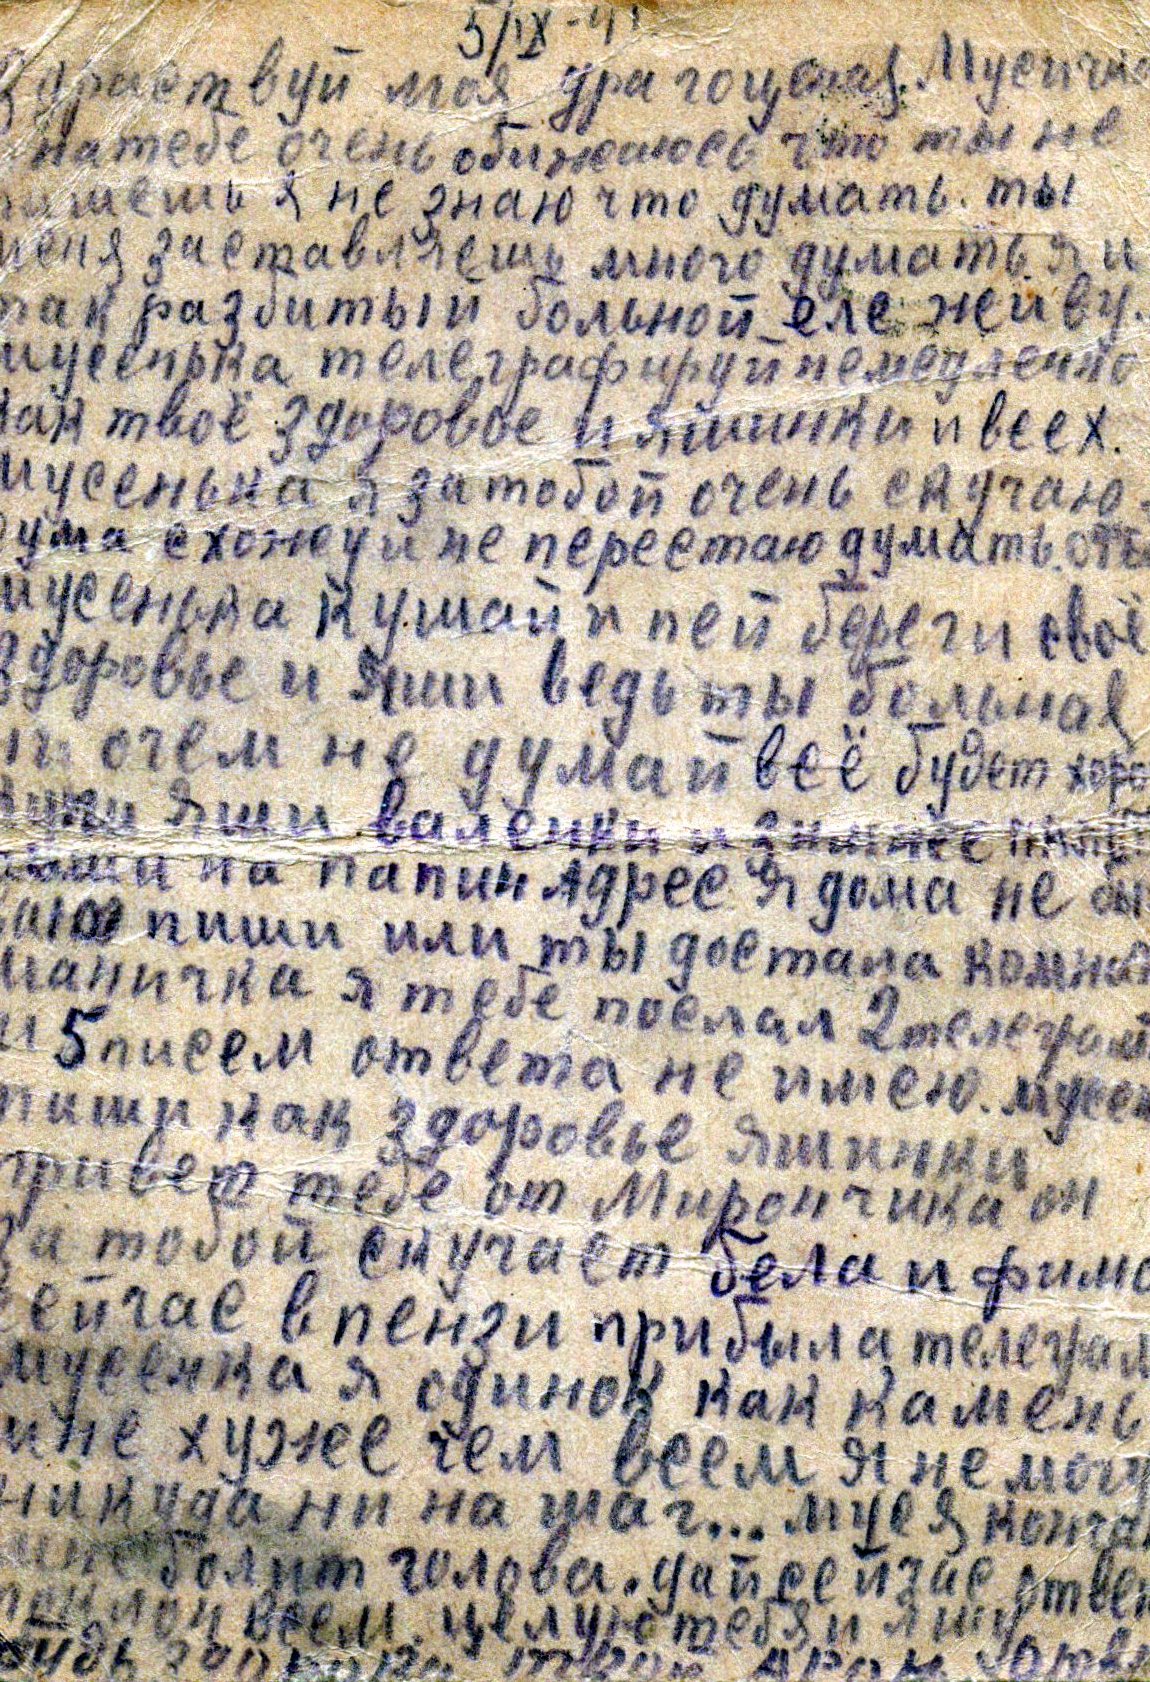 5/IX-41
здраствуй моя драгоценая. Мусичка
на тебе очень обижаюсь что ты не
пишешь я не знаю что думать. ты
меня заставляешь много думать. я и
так разбитый больной еле жеиву.
мусенька телеграфируй немедленно
как твоё здоровое и яшинки и всех.
мусенька я за тобой очень скучаю.
сума схожеу и не перестаю думать.
мусенька кушай и пей береги своё
здоровье и яши ведь ты больная
ни очем не думай всё будет хоро
купи Яши валенки и зимнее
пиши на папин адрес я дома не бы
ваю пиши или ты достала комнат
маничка я тебе послал 2 телеграм
и 5 писем ответа не имею. мусен
пиши как здоровье яшинки
привет тебе от Мирончика он
за тобой скучает бела и фима
сейчас в пензи прибыла телеграм
мусенка я одинок как камень
мне хуже чем всем я не могу
никуда ни на шаг... муся кончаю
болит голова. дай сейчас ответ
поклон всем. целую тебя и яшу
будь здорова твой